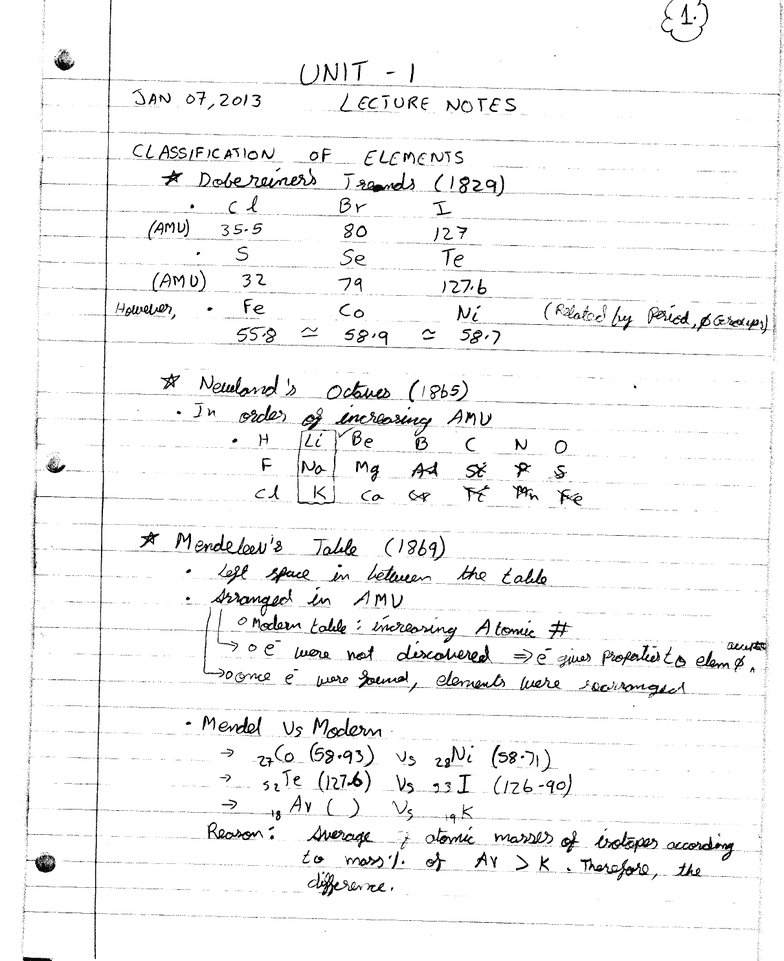 1.
UNIT - 1
JAN 07, 2013 LECTURE NOTES
CLASSIFICATION OF ELEMENTS
☆ Dobereiner's Treands (1829)
• Cl Br I
(AMU) 35.5 80 127
• S Se Te
(AMU) 32 79 127.6
However, • Fe Co Ni (Related by Period, ∅ Groups)
55.8 ≃ 58.9 ≃ 58.7
☆ Newland's Octaves (1865)
• In order of increasing AMU
• H Li Be B C N O
F Na Mg S
Cl K Ca Fe
☆ Mendeleev's Table (1869)
• Left space in between the table
• Arranged in AMU
o Modern table: increasing Atomic #
→ o e⁻ were not discovered ⇒ e⁻ gives properties to elem
→ o once e⁻ were found, elements were rearranged
• Mendel Vs Modern
→ ₂₇Co (58.93) vs ₂₈Ni (58.71)
→ ₅₂Te (127.6) Vs ₅₃I (126-90)
→ ₁₈Ar ( ) Vs ₁₉K
Reason: Average atomic masses of isotopes according
to mass% of Ar > K. Therefore, the
difference.